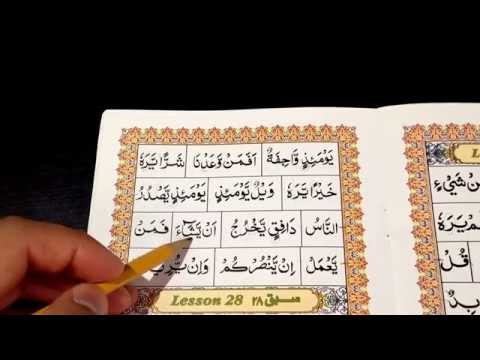 يَوْمَئِذٍ وَّاجِفَةٌ اَفَمَنْ وَّعَدْنَا شَرًّا يَّرَهٗ
خَيْرًا يَّرَهٗ وَيْلٌ يَّوْمَئِذٍ يَوْمَئِذٍ يَّصْدُرُ
النَّاسُ دَافِقٍ يَّخْرُجُ اَنْ يَّشَآءَ فَمَنْ
يَّعْمَلْ اِنْ يَّنْصُرْكُمْ وَاِنْ
Lesson 28 سبق ٢٨
شَيْءٍ
يَرَهٗ
قُلْ